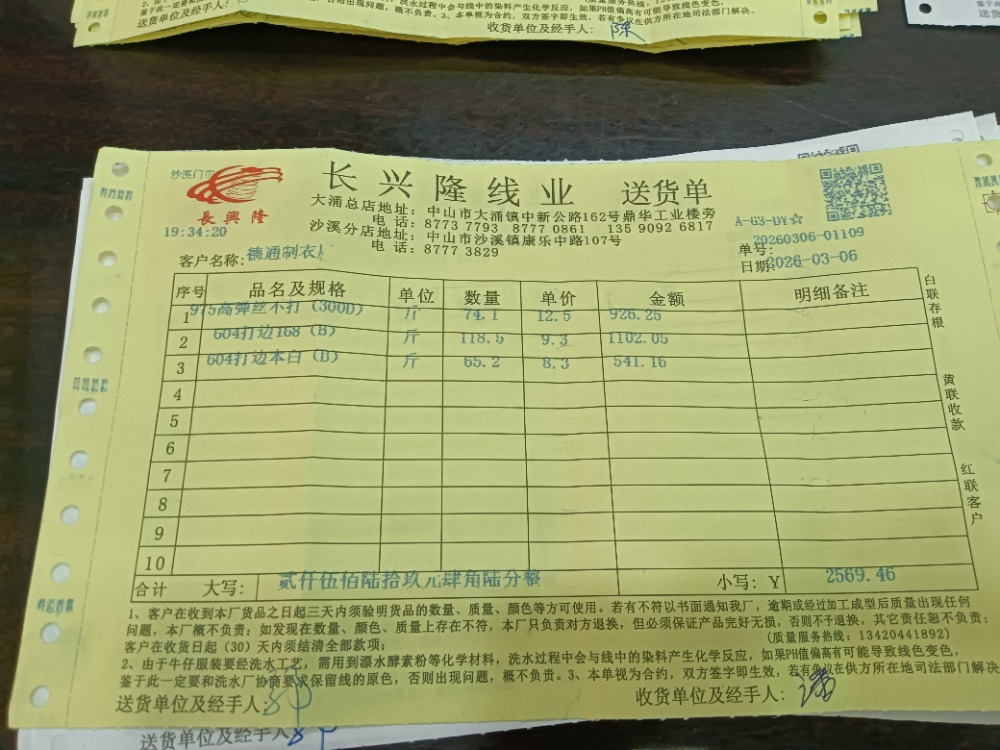 鉴于此一定要和洗水
收货单位及经手人：
送货单位及经手人：
沙溪门市
長興隆
19:34:20
长兴隆线业 送货单
大涌总店地址：中山市大涌镇中新公路162号鼎华工业楼旁
电 话：8773 7793 8777 0861 135 9092 6817
沙溪分店地址：中山市沙溪镇康乐中路107号
电 话：8777 3829
A-G3-DY☆
单号：20260306-01109
日期：2026-03-06
客户名称：德通制衣厂
序号 品名及规格 单位 数量 单价 金额 明细备注
1 975高弹丝不打（300D） 斤 74.1 12.5 926.25
2 604打边168（B） 斤 118.5 9.3 1102.05
3 604打边本白（B） 斤 65.2 8.3 541.16
4
5
6
7
8
9
10
合计 大写： 贰仟伍佰陆拾玖元肆角陆分整 小写：Y 2569.46
白联存根
黄联收款
红联客户
1、客户在收到本厂货品之日起三天内须验明货品的数量、质量、颜色等方可使用。若有不符以书面通知我厂，逾期或经过加工成型后质量出现任何
问题，本厂概不负责；如发现在数量、颜色、质量上存在不符，本厂只负责对方退换，但必须保证产品完好无损，否则不予退换，其它责任恕不负责；
客户在收货日起（30）天内须结清全部款项； （质量服务热线：13420441892）
2、由于牛仔服装要经洗水工艺，需用到漂水酵素粉等化学材料，洗水过程中会与线中的染料产生化学反应，如果PH值偏高有可能导致线色变色，
鉴于此一定要和洗水厂协商要求保留线的原色，否则出现问题，概不负责。3、本单视为合约，双方签字即生效，若有争议在供方所在地司法部门解决
送货单位及经手人： 收货单位及经手人：
送货单位及经手人